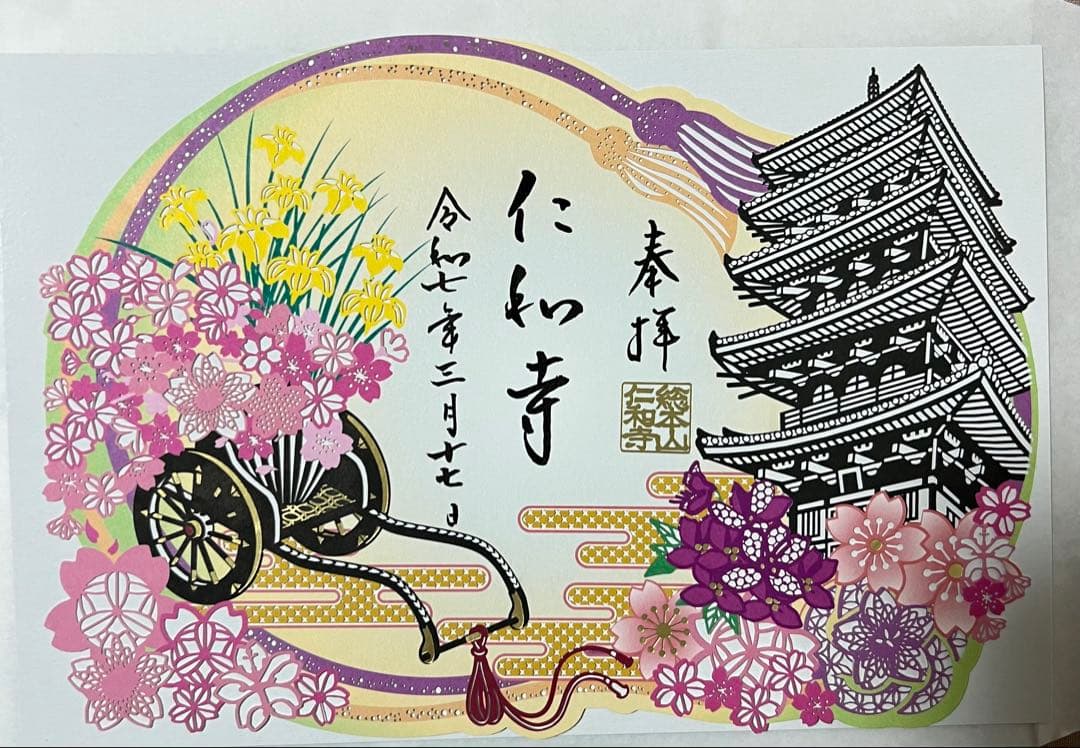 奉拝
総本山
仁和寺
仁和寺
令和七年三月十七日